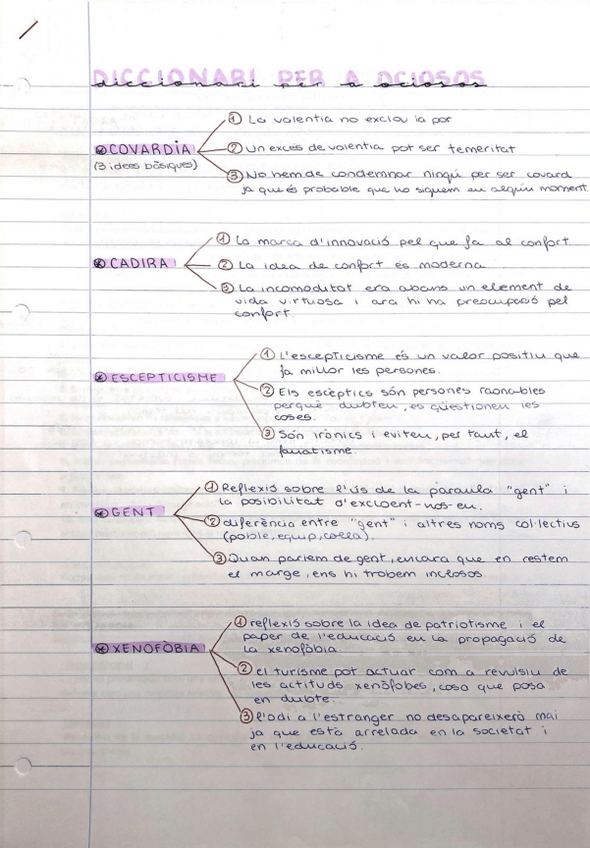 DICCIONARI PER A OCIOSOS
diccionari per a ociosos
① La valentia no exclou la por
COVARDIA
(3 idees bàsiques)
② Un excés de valentia pot ser temeritat
③ No hem de condemnar ningú per ser covard
ja que és probable que ho siguem en algun moment
① La marca d'innovació pel que fa al confort
CADIRA
② La idea de confort és moderna
③ La incomoditat era abans un element de
vida virtuosa i ara hi ha preocupació pel
confort.
① L'escepticisme és un valor positiu que
fa millor les persones.
ESCEPTICISME
② Els escèptics són persones raonables
perquè dubten, es qüestionen les
coses.
③ Són irònics i eviten, per tant, el
fanatisme.
① Reflexió sobre l'ús de la paraula "gent" i
la posibilitat d'excloent-nos-en.
GENT
② diferència entre "gent" i altres noms col·lectius
(poble, equip, colla).
③ Quan parlem de gent, encara que en restem
el marge, ens hi trobem inclosos
① reflexió sobre la idea de patriotisme i el
paper de l'educació en la propagació de
la xenofòbia.
XENOFÒBIA
② el turisme pot actuar com a revulsiu de
les actituds xenòfobes, cosa que posa
en dubte.
③ l'odi a l'estranger no desapareixerà mai
ja que està arrelada en la societat i
en l'educació.